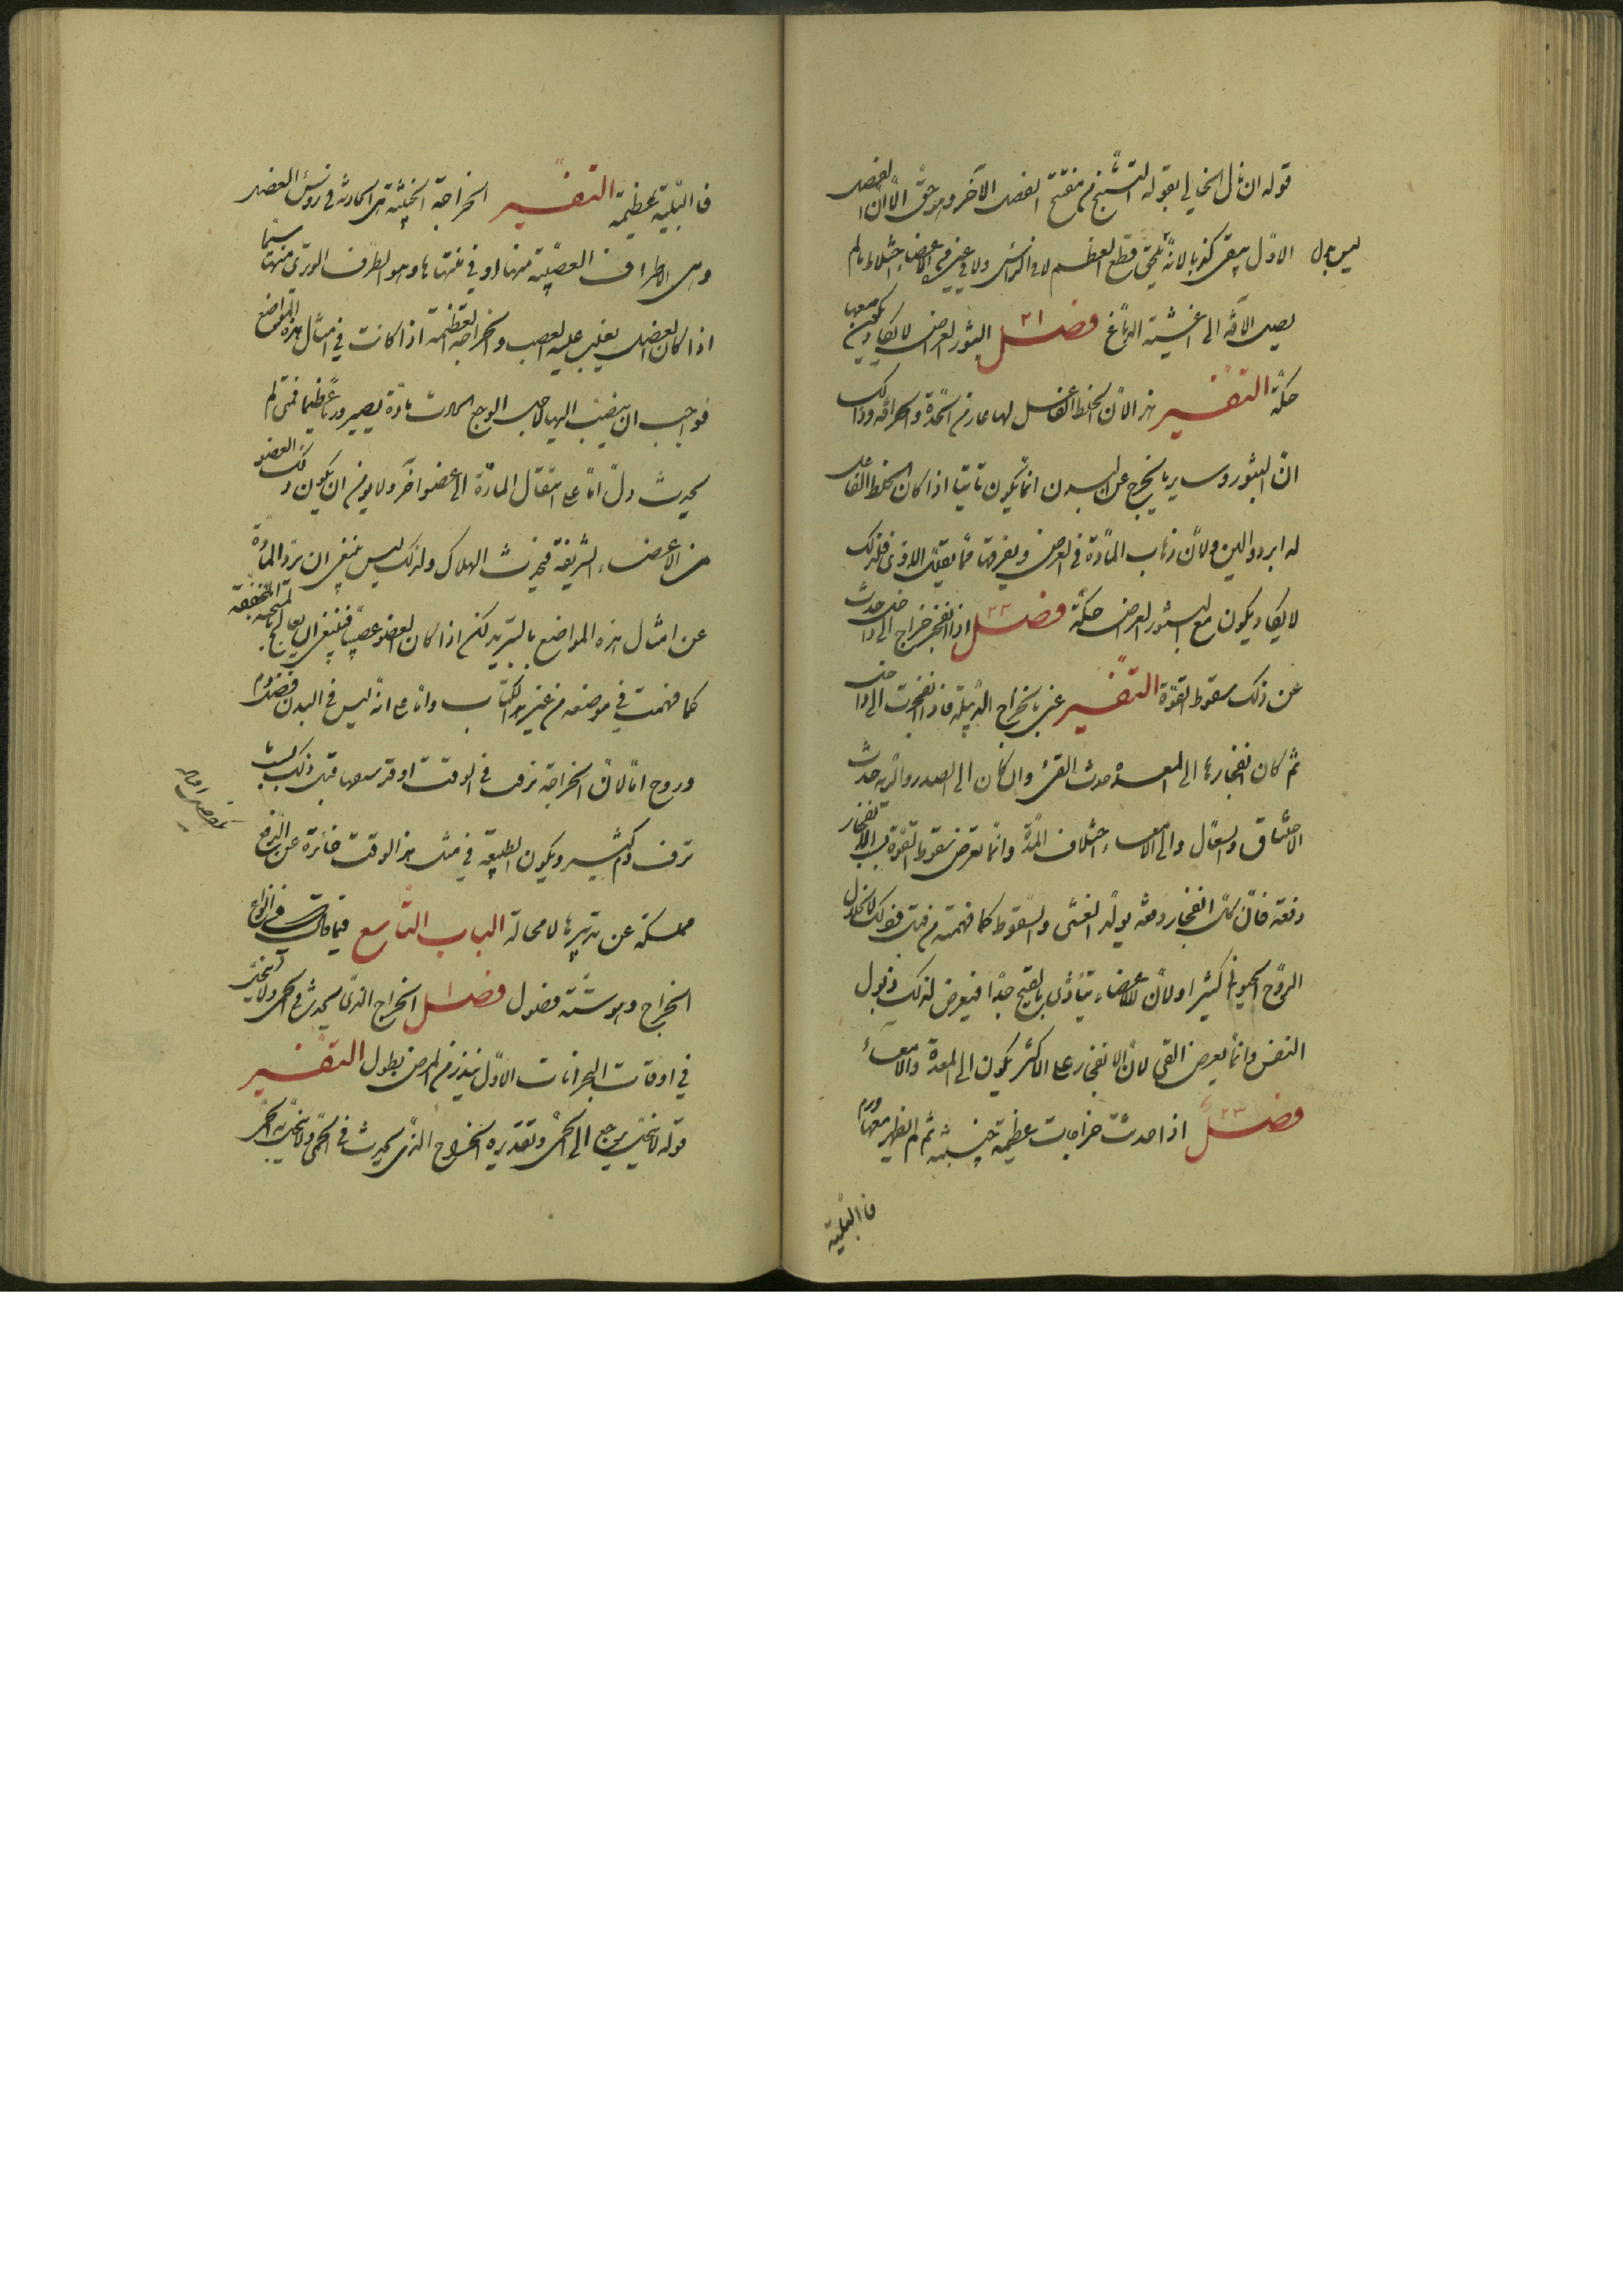 قوله ان نال الخيالى بقوله التشنج من مفتتح الفصل الآخر وهو حق الا ان الفصل
ليس بدل الاول يبقى لانه قطع العظم لا فى الرأس ولا فى غيره من الاعضاء اختلاط ما لم
يصل الآفة الى اغشية الدماغ فصــل ٢١ البثور العراض لا يكاد يكون معها
حكة التفسير هذا لأن الخلط الفاعل لها عادم الحدة والحرافة وذلك
ان البثور وساير ما يخرج عن البدن انما يكون ناتيا اذا كان الخلط الفاعل
له ابرد والين ولأن ذهاب المادة فى العرض وتفرقها مما يقلل الاذى فلذلك
لا يكاد يكون مع البثور العراض حكة فصــل ٢٢ اذا انفجر خراج الى داخل حدث
عن ذلك سقوط القوة التفسير عنى بالخراج الدبيلة فاذا انفجرت الى داخل
ثم كان انفجارها الى المعدة حدث القئ وان كان الى الصدر والرية حدث
الاختناق والسعال والى الامعاء اختلاف المدة وانما يعرض سقوط القوة بسبب الانفجار
دفعة فان كل انفجار دفعة يولد الغشى والسقوط كما فهمته من قبل فذلك لانحلال
الروح الحيوانى كثيرا ولأن الاعضاء يتأذى بالقيح جدا فيعرض لذلك ذبول
النفس وانما يعرض القئ لأن الانفجار على الاكثر يكون الى المعدة والامعاء
فصــل ٢٣ اذا حدثت خراجات عظيمة خبيثة ثم لم يظهر معها ورم
فالبلية
فالبلية عظيمة التفسير الخراجة الخبيثة هى الحادثة فى رؤس العضل
وهى الاطراف العصبية منها او فى منتهاها وهو الطرف الوترى منها سيما
اذا كان العضل يغلب عليه العصب والخراجة العظيمة اذا كانت فى امثال هذه المواضع
فواجب ان ينصب اليها لاجل الوجع الحادث مادة يصير ورما عظيما فمتى لم
يحدث دل اما على انتقال المادة الى عضو آخر ولا يؤمن ان يكون ذلك العضو
من الاعضاء الشريفة فيحدث الهلاك ولذلك ليس ينبغى ان يرد المادة
عن امثال هذه المواضع بالتبريد لكن اذا كان العضو عصبيا فينبغى ان يعالج المجففة
كما فهمت فى موضعه من غير هذا الكتاب واما على انه ليس فى البدن فضل دم
وروح اما لأن الخراجة نزف فى الوقت او قد سبقها قبل ذلك
نزف دم كثير ويكون الطبيعة فى مثل هذا الوقت خائرة عن النضج
ممسكة عن تدبيرها لا محالة الباب التاسع فيما قالت فى انواع
الخراج وهو ستة فصول فصــل ١ الخراج الذى يحدث فى الحمى ولا ينحل
فى اوقات البحرانات الاول ينذر من المرض بطول التفسير
قوله لا ينحل يرجع الى الحمى وتقديره الخراج الذى يحدث فى الحمى ولا ينحل به الحمى